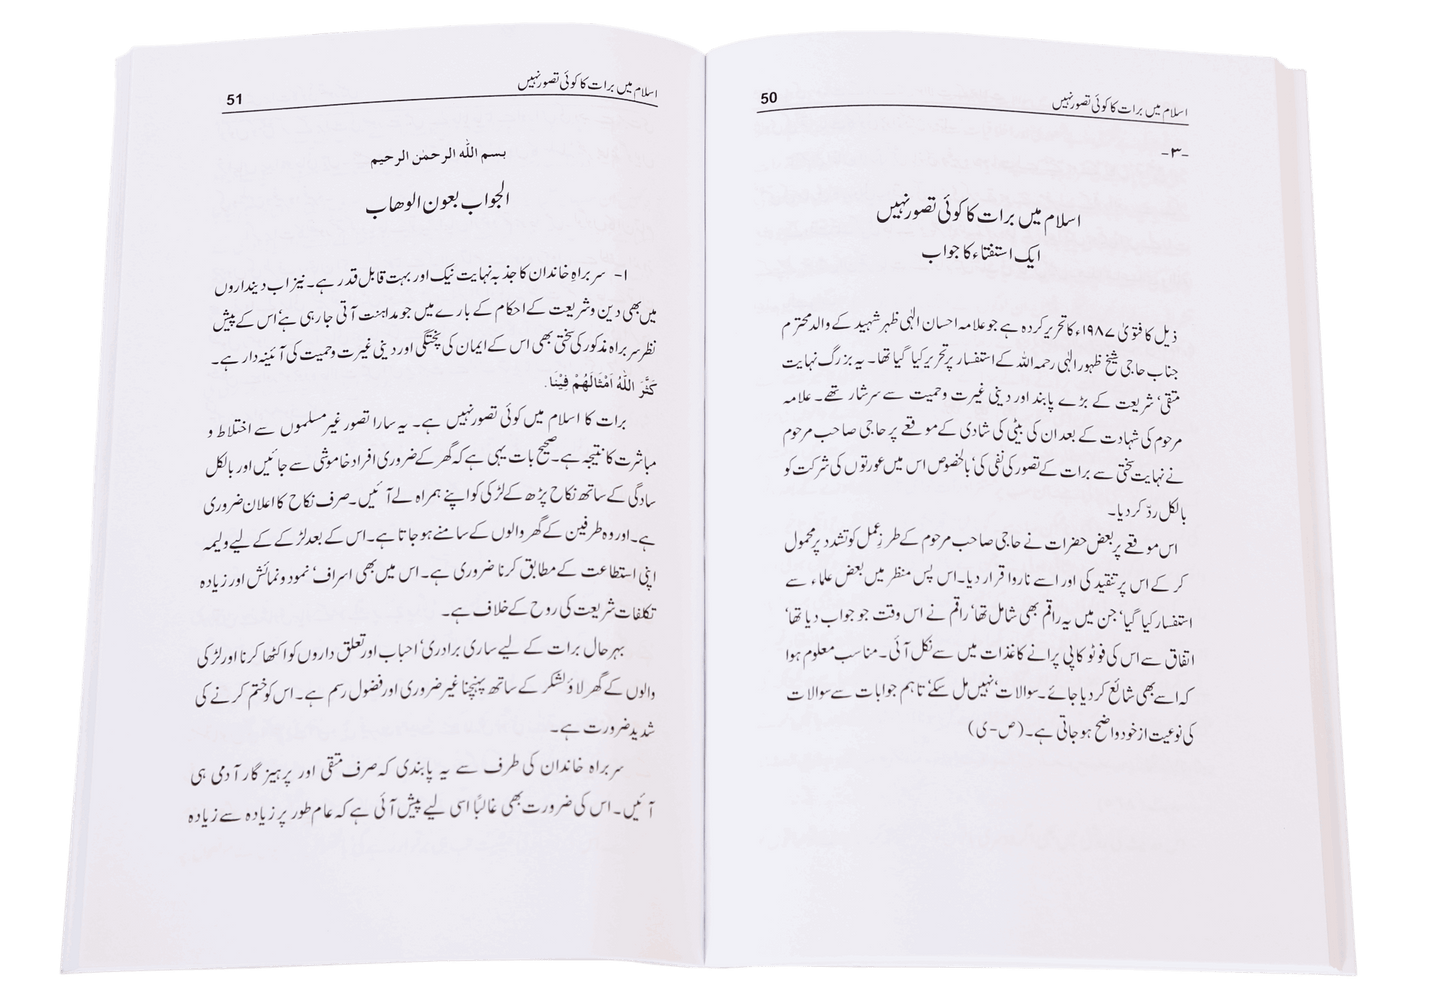 اسلام میں برات کا کوئی تصور نہیں
50
-۳-
اسلام میں برات کا کوئی تصور نہیں
ایک استفتاء کا جواب
ذیل کا فتویٰ ۱۹۸۷ء کا تحریر کردہ ہے جو علامہ احسان الٰہی ظہیر شہید کے والد محترم
جناب حاجی شیخ ظہور الٰہی رحمہ اللہ کے استفسار پر تحریر کیا گیا تھا۔ یہ بزرگ نہایت
متقی‘ شریعت کے بڑے پابند اور دینی غیرت وحمیت سے سرشار تھے۔ علامہ
مرحوم کی شہادت کے بعد ان کی بیٹی کی شادی کے موقعے پر حاجی صاحب مرحوم
نے نہایت سختی سے برات کے تصور کی نفی کی‘ بالخصوص اس میں عورتوں کی شرکت کو
بالکل ردّ کر دیا۔
اس موقعے پر بعض حضرات نے حاجی صاحب مرحوم کے طرزِ عمل کو تشدد پر محمول
کر کے اس پر تنقید کی اور اسے ناروا قرار دیا۔ اس پس منظر میں بعض علماء سے
استفسار کیا گیا‘ جن میں یہ راقم بھی شامل تھا‘ راقم نے اس وقت جو جواب دیا تھا‘
اتفاق سے اس کی فوٹو کاپی پرانے کاغذات میں سے نکل آئی۔ مناسب معلوم ہوا
کہ اسے بھی شائع کر دیا جائے۔ سوالات‘ نہیں مل سکے‘ تاہم جوابات سے سوالات
کی نوعیت از خود واضح ہو جاتی ہے۔ (ص-ی)
اسلام میں برات کا کوئی تصور نہیں
51
بسم اللہ الرحمٰن الرحیم
الجواب بعون الوھاب
۱- سربراہِ خاندان کا جذبہ نہایت نیک اور بہت قابل قدر ہے۔ نیز اب دینداروں
میں بھی دین وشریعت کے احکام کے بارے میں جو مداہنت آتی جا رہی ہے‘ اس کے پیش
نظر سربراہ مذکور کی سختی بھی اس کے ایمان کی پختگی اور دینی غیرت وحمیت کی آئینہ دار ہے۔
كَثَّرَ اللّٰهُ اَمْثَالَهُمْ فِيْنَا.
برات کا اسلام میں کوئی تصور نہیں ہے۔ یہ سارا تصور غیر مسلموں سے اختلاط و
مباشرت کا نتیجہ ہے۔ صحیح بات یہی ہے کہ گھر کے ضروری افراد خاموشی سے جائیں اور بالکل
سادگی کے ساتھ نکاح پڑھ کے لڑکی کو اپنے ہمراہ لے آئیں۔ صرف نکاح کا اعلان ضروری
ہے۔ اور وہ طرفین کے گھر والوں کے سامنے ہو جاتا ہے۔ اس کے بعد لڑکے کے لیے ولیمہ
اپنی استطاعت کے مطابق کرنا ضروری ہے۔ اس میں بھی اسراف‘ نمود ونمائش اور زیادہ
تکلفات شریعت کی روح کے خلاف ہے۔
بہرحال برات کے لیے ساری برادری‘ احباب اور تعلق داروں کو اکٹھا کرنا اور لڑکی
والوں کے گھر لاؤ لشکر کے ساتھ پہنچنا غیر ضروری اور فضول رسم ہے۔ اس کو ختم کرنے کی
شدید ضرورت ہے۔
سربراہ خاندان کی طرف سے یہ پابندی کہ صرف متقی اور پرہیز گار آدمی ہی
آئیں۔ اس کی ضرورت بھی غالباً اسی لیے پیش آئی ہے کہ عام طور پر زیادہ سے زیادہ